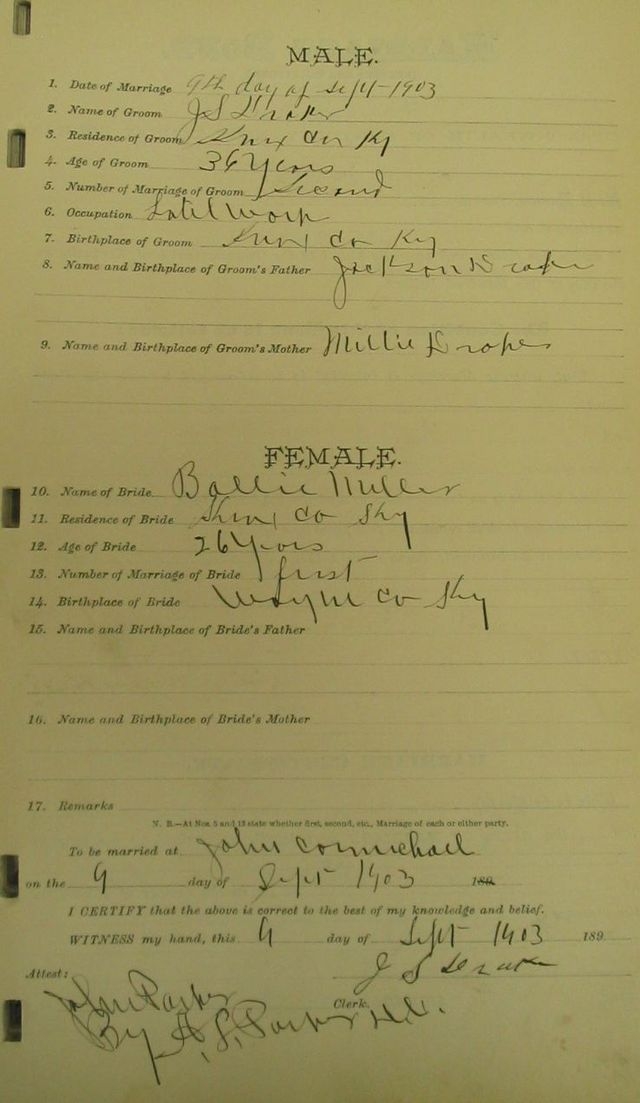 MALE.
1. Date of Marriage 9th day of Sept 1903
2. Name of Groom J S Drake
3. Residence of Groom Knox Co Ky
4. Age of Groom 36 Years
5. Number of Marriage of Groom Second
6. Occupation
7. Birthplace of Groom Knox Co Ky
8. Name and Birthplace of Groom's Father Jackson Drake
9. Name and Birthplace of Groom's Mother Millie Drake
FEMALE.
10. Name of Bride Ballie Miller
11. Residence of Bride Knox Co Ky
12. Age of Bride 26 Years
13. Number of Marriage of Bride first
14. Birthplace of Bride Wayne Co Ky
15. Name and Birthplace of Bride's Father
16. Name and Birthplace of Bride's Mother
17. Remarks
N. B.—At Nos. 5 and 13 state whether first, second, etc., Marriage of each or either party.
To be married at John Carmichael
on the 9 day of Sept 1903 189
I CERTIFY that the above is correct to the best of my knowledge and belief.
WITNESS my hand, this 9 day of Sept 1903 189
J S Drake
Attest:
John Parker Clerk.
By Parker D.C.